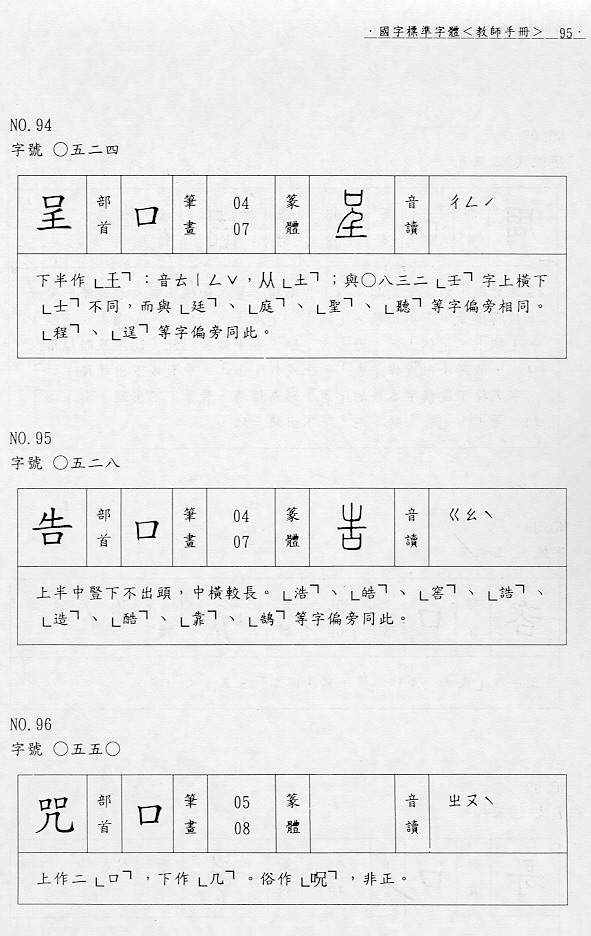 ·國字標準字體<教師手冊> 95·
NO.94
字號 ○五二四
呈 部首 口 筆畫 04 07 篆體 音讀 ㄔㄥˊ
下半作「𡈼」:音ㄊㄧㄥˇ,从「土」;與○八三二「壬」字上橫下
「士」不同,而與「廷」、「庭」、「聖」、「聽」等字偏旁相同。
「程」、「逞」等字偏旁同此。
NO.95
字號 ○五二八
告 部首 口 筆畫 04 07 篆體 音讀 ㄍㄠˋ
上半中豎下不出頭,中橫較長。「浩」、「皓」、「窖」、「誥」、
「造」、「酷」、「靠」、「鵠」等字偏旁同此。
NO.96
字號 ○五五○
咒 部首 口 筆畫 05 08 篆體 音讀 ㄓㄡˋ
上作二「口」,下作「几」。俗作「呪」,非正。